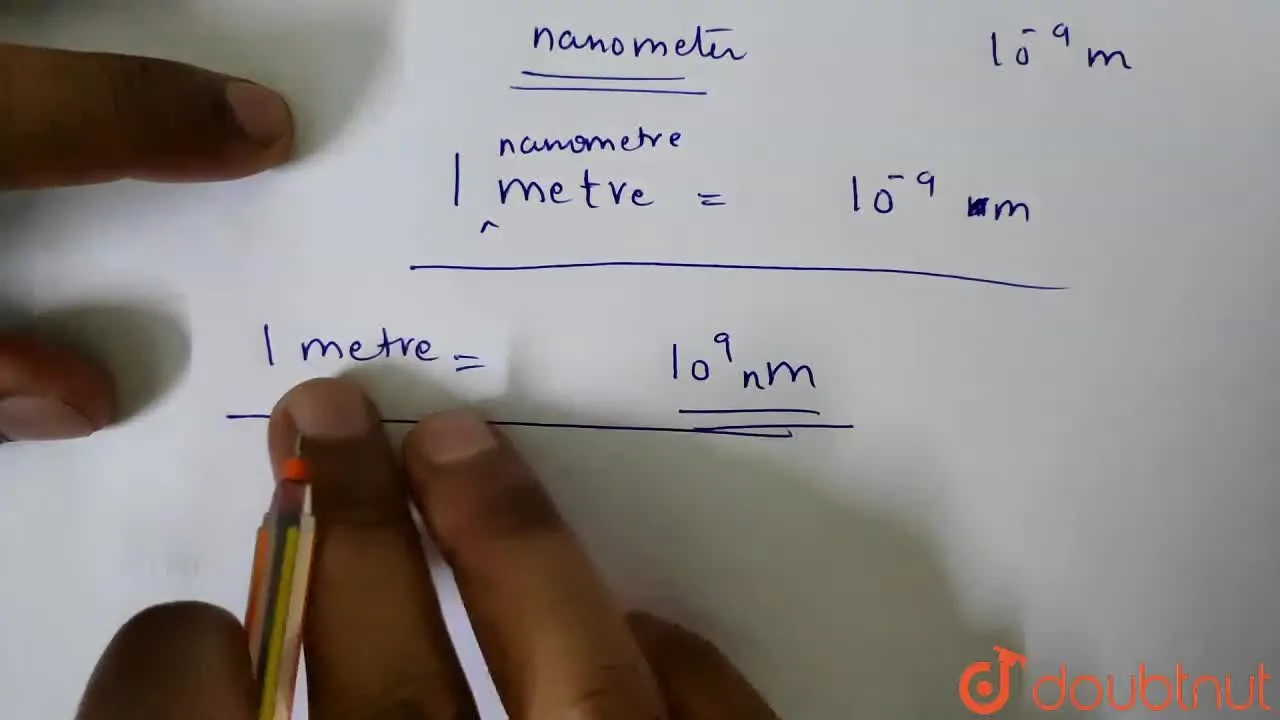 nanometer 10⁻⁹ m
nanometre
1 metre = 10⁻⁹ m
^
1 metre = 10⁹ nm
doubtnut